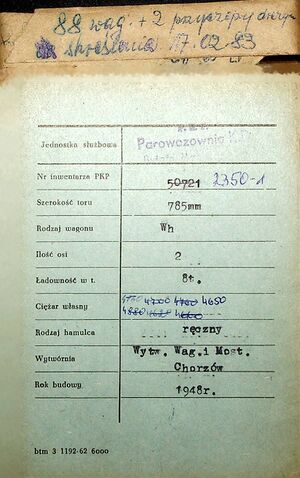 88 wag. + 2 przyczepy
skreślenia 17.02.83
Jednostka służbowa
Parowozownia K.D.
Nr inwentarza PKP 50721 2350-1
Szerokość toru 785mm
Rodzaj wagonu Wh
Ilość osi 2
Ładowność w t. 8t.
Ciężar własny 4700 4760 4650
4880 4620 4660
Rodzaj hamulca ręczny
Wytwórnia Wytw. Wag. i Most.
Chorzów
Rok budowy 1948r.
btm 3 1192-62 6000